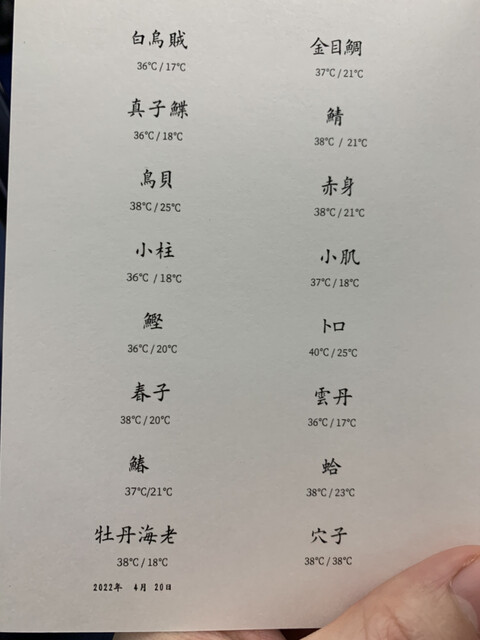 白烏賊
36℃ / 17℃
真子鰈
36℃ / 18℃
鳥貝
38℃ / 25℃
小柱
36℃ / 18℃
鰹
36℃ / 20℃
春子
38℃ / 20℃
鰆
37℃/21℃
牡丹海老
38℃ / 18℃
2022年 4月 20日
金目鯛
37℃ / 21℃
鯖
38℃ / 21℃
赤身
38℃ / 21℃
小肌
37℃ / 18℃
トロ
40℃ / 25℃
雲丹
36℃ / 17℃
蛤
38℃ / 23℃
穴子
38℃ / 38℃